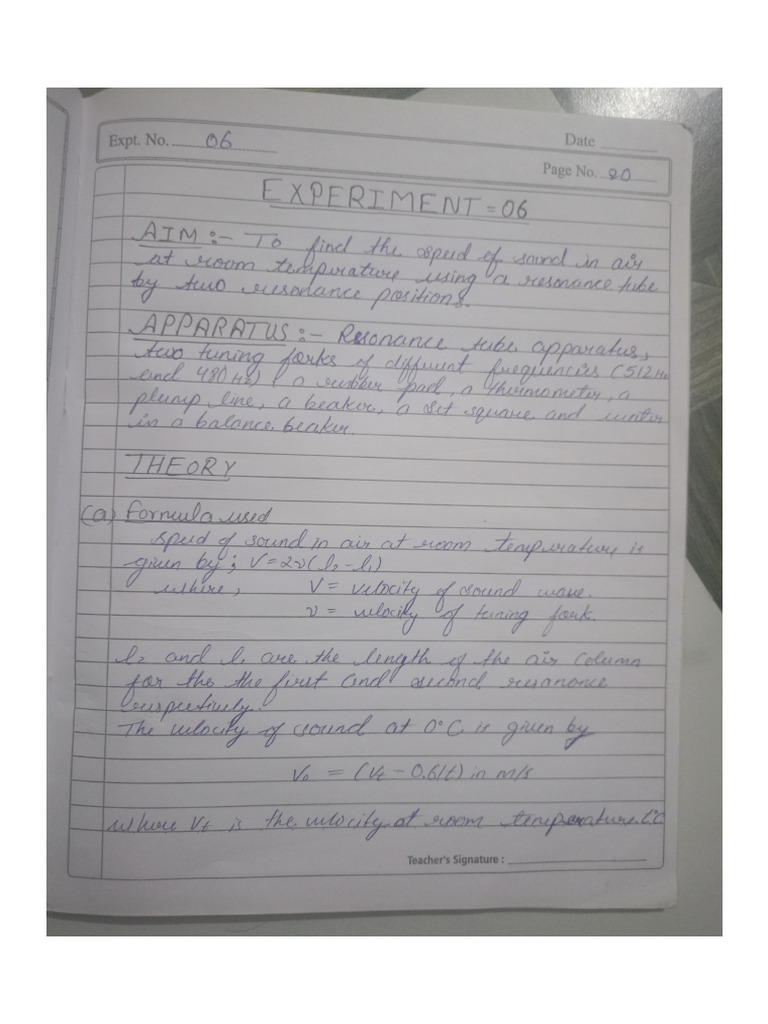 Expt. No. 06
Date
Page No. 20
EXPERIMENT = 06
AIM :- To find the speed of sound in air
at room temperature using a resonance tube
by two resonance positions.
APPARATUS :- Resonance tube apparatus,
two tuning forks of different frequencies (512Hz
and 480 Hz) ( a rubber pad, a thermometer, a
plump line, a beaker, a set square and water
in a balance beaker.
THEORY
(a) Formula used
speed of sound in air at room temperature is
given by; V = 2ν(l₂ - l₁)
where, V = velocity of sound wave.
ν = velocity of tuning fork.
l₂ and l₁ are the length of the air column
for the the first and second resonance
respectively.
The velocity of sound at 0°C is given by
V₀ = (Vt - 0.61t) in m/s
where Vt is the velocity at room temperature t°C
Teacher's Signature :